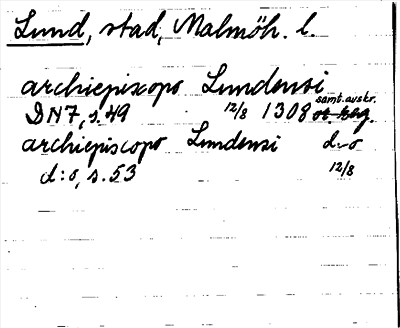 Lund, stad, Malmöh. l.
archiepixopo Lundensi
DN7, s. 49 12/8 1308 samt. avskr.
archiepiscopo Lundensi d:o
d:o, s. 53 12/8